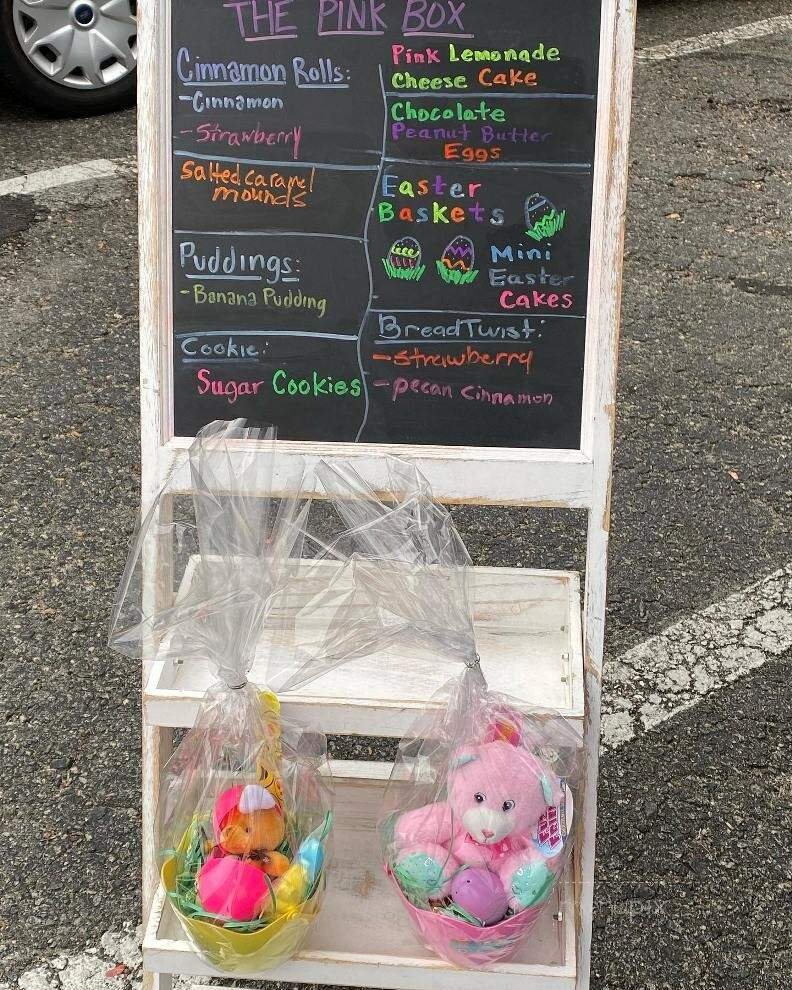 THE PINK BOX
Cinnamon Rolls:
-Cinnamon
-Strawberry
Salted caramel
mounds
Puddings:
-Banana Pudding
Cookie:
Sugar Cookies
Pink Lemonade
Cheese Cake
Chocolate
Peanut Butter
Eggs
Easter
Baskets
Mini
Easter
Cakes
Bread Twist:
-Strawberry
-pecan cinnamon